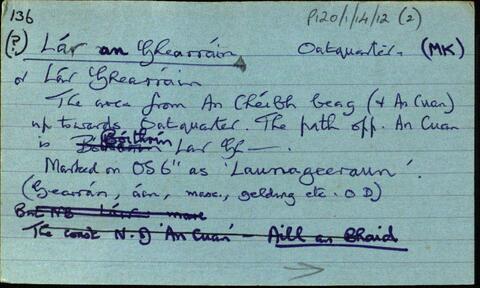 136
P120/1/14/12 (2)
(?) Lár an Ghearráin Oatquarter. (MK)
or Lár Ghearráin
The area from An Chéibh beag (& An Cuan)
up towards Oatquarter. The path opp. An Cuan
is Bóithrín Lár Gh—.
Marked on OS 6" as 'Launageeraun'.
(Gearrán, áin, masc., gelding etc. O D)
But NB Láir mare
The coast N. of 'An Cuan' – Aill an Bhaid